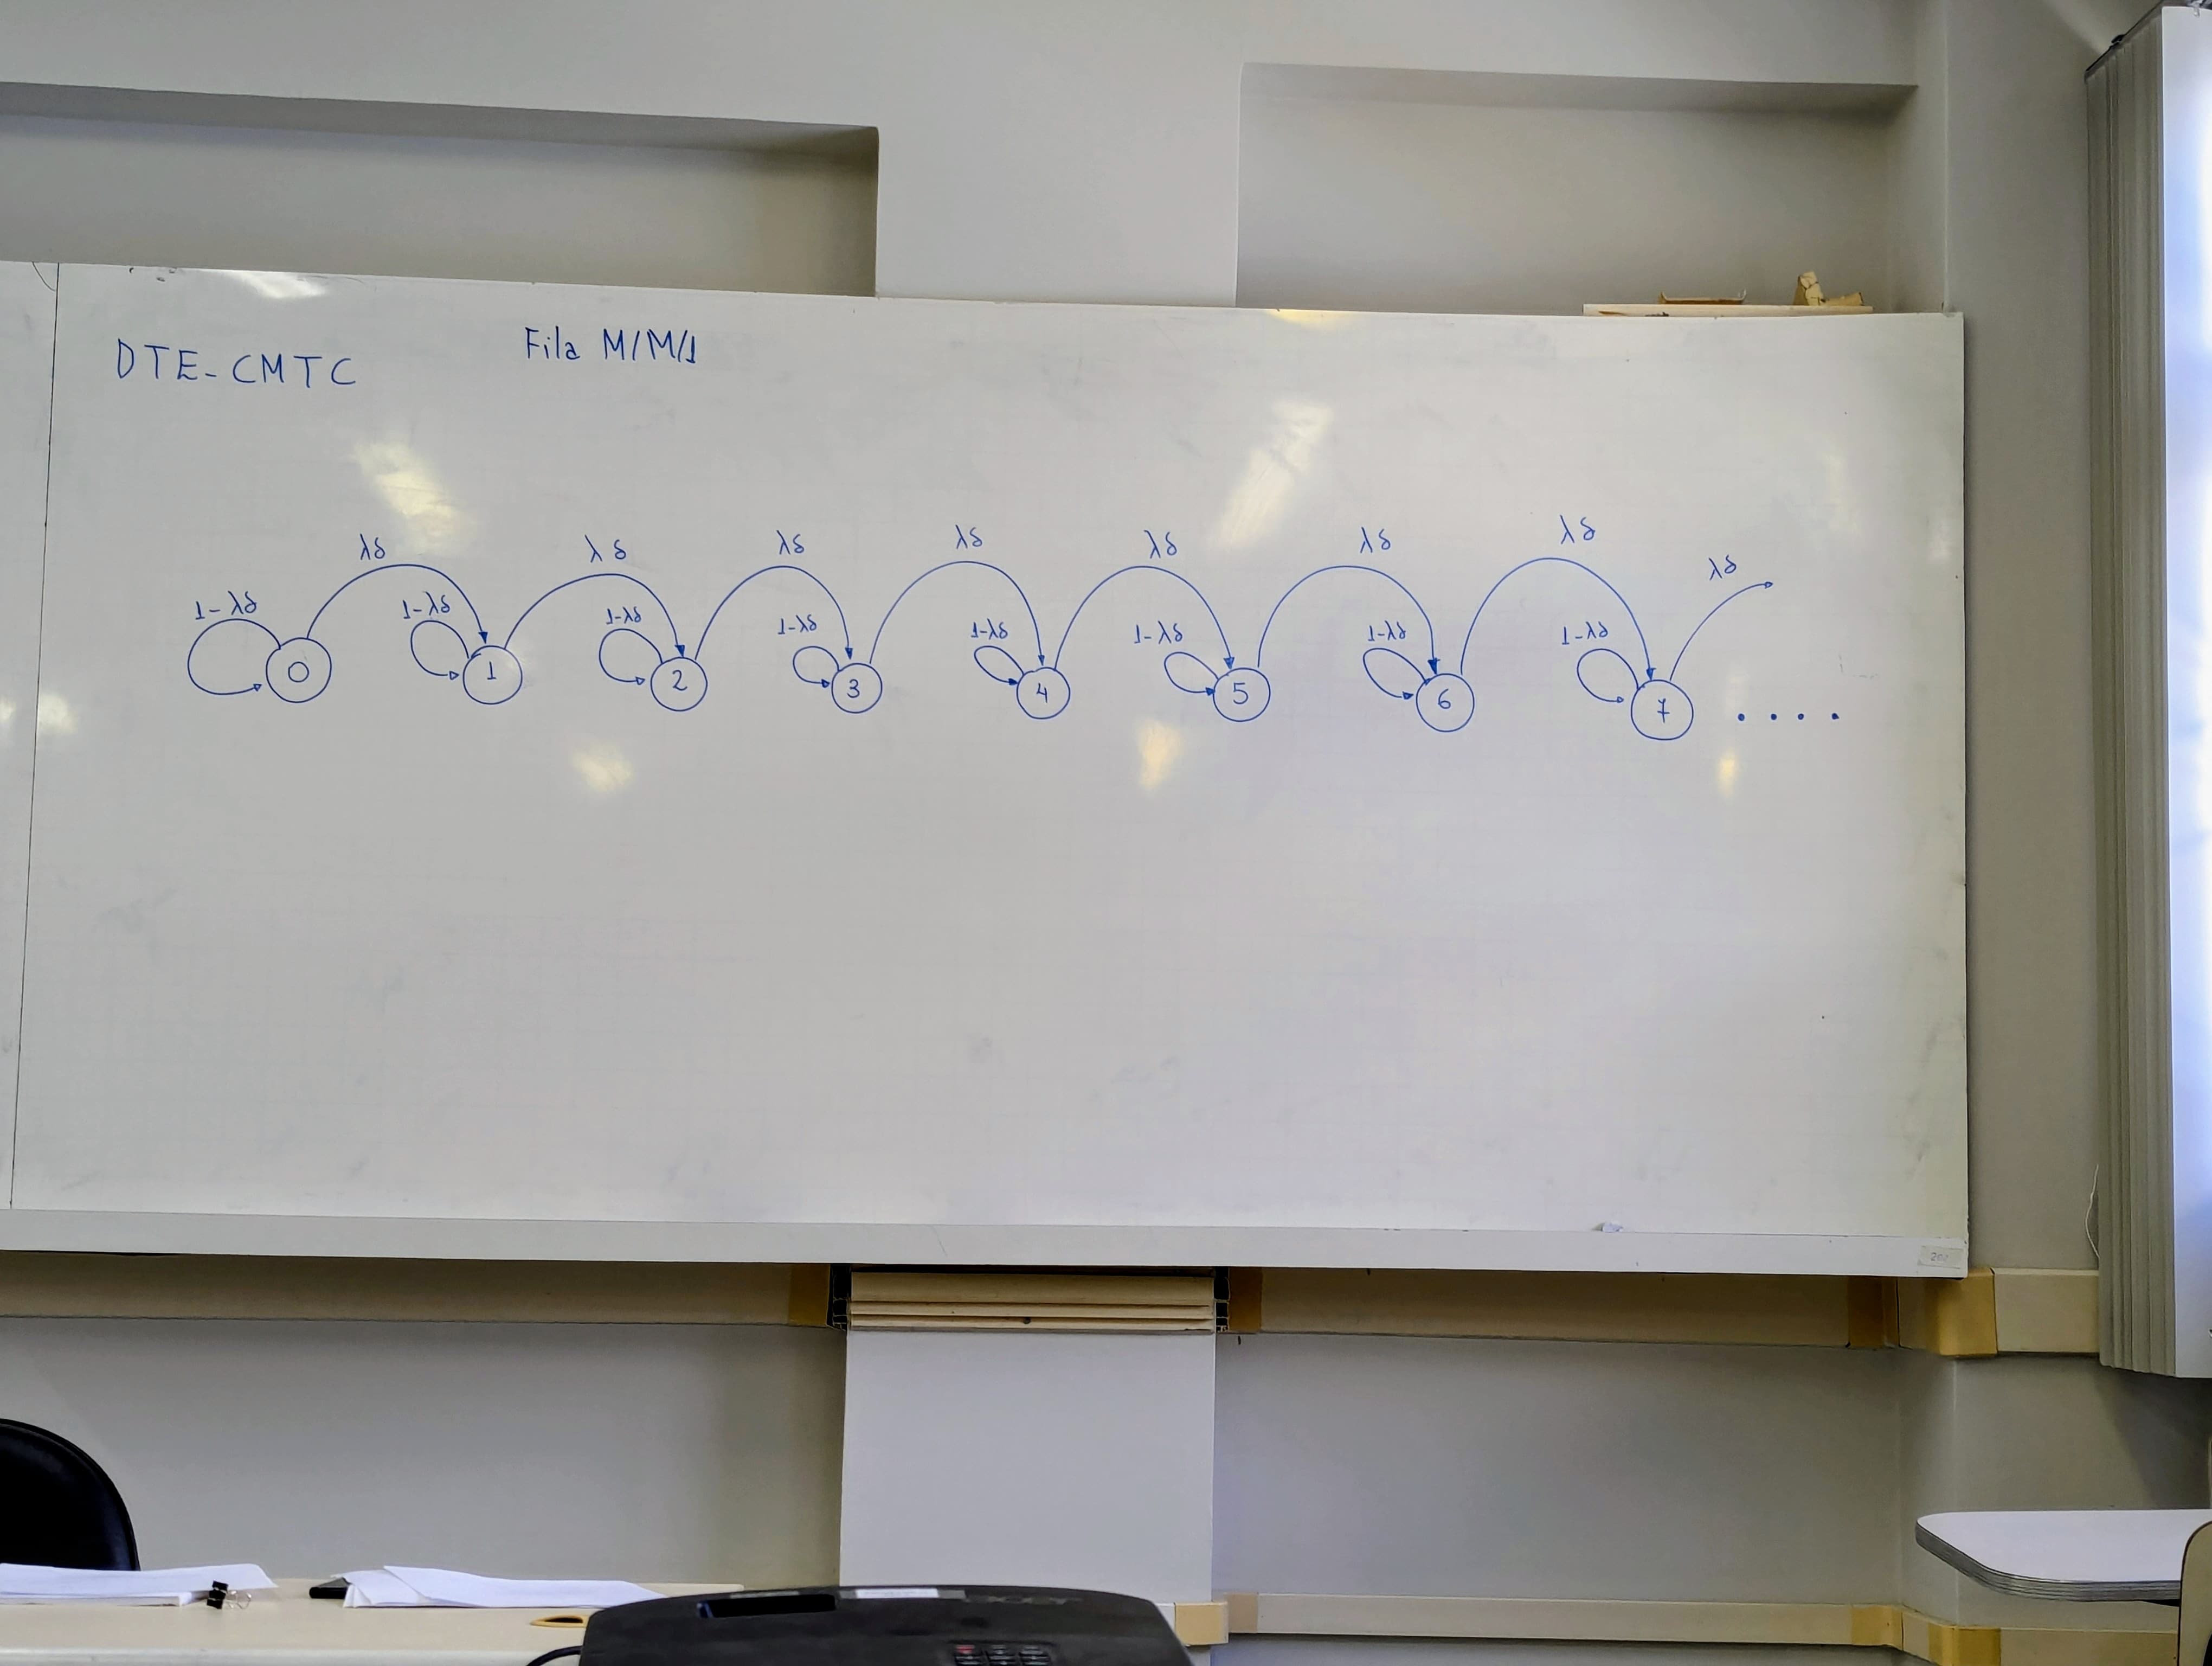 DTE-CMTC
Fila M/M/1
λδ λδ λδ λδ λδ λδ λδ λδ
1-λδ 1-λδ 1-λδ 1-λδ 1-λδ 1-λδ 1-λδ 1-λδ
0 1 2 3 4 5 6 7 ....